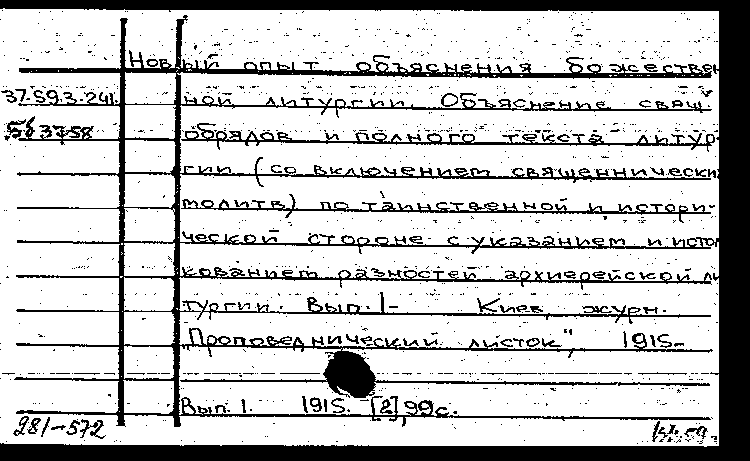 Новый опыт объяснения божествен
37.593.241. ной литургии. Объяснение свящ.
3758 обрядов и полного текста литур-
гии (со включением священнически
молитв) по таинственной и истори-
ческой стороне с указанием и истол
кованием разностей архиерейской ли
тургии. Вып. 1- Киев, журн.
"Проповеднический листок", 1915-
Вып. 1. 1915. [2], 99 с.
281-572